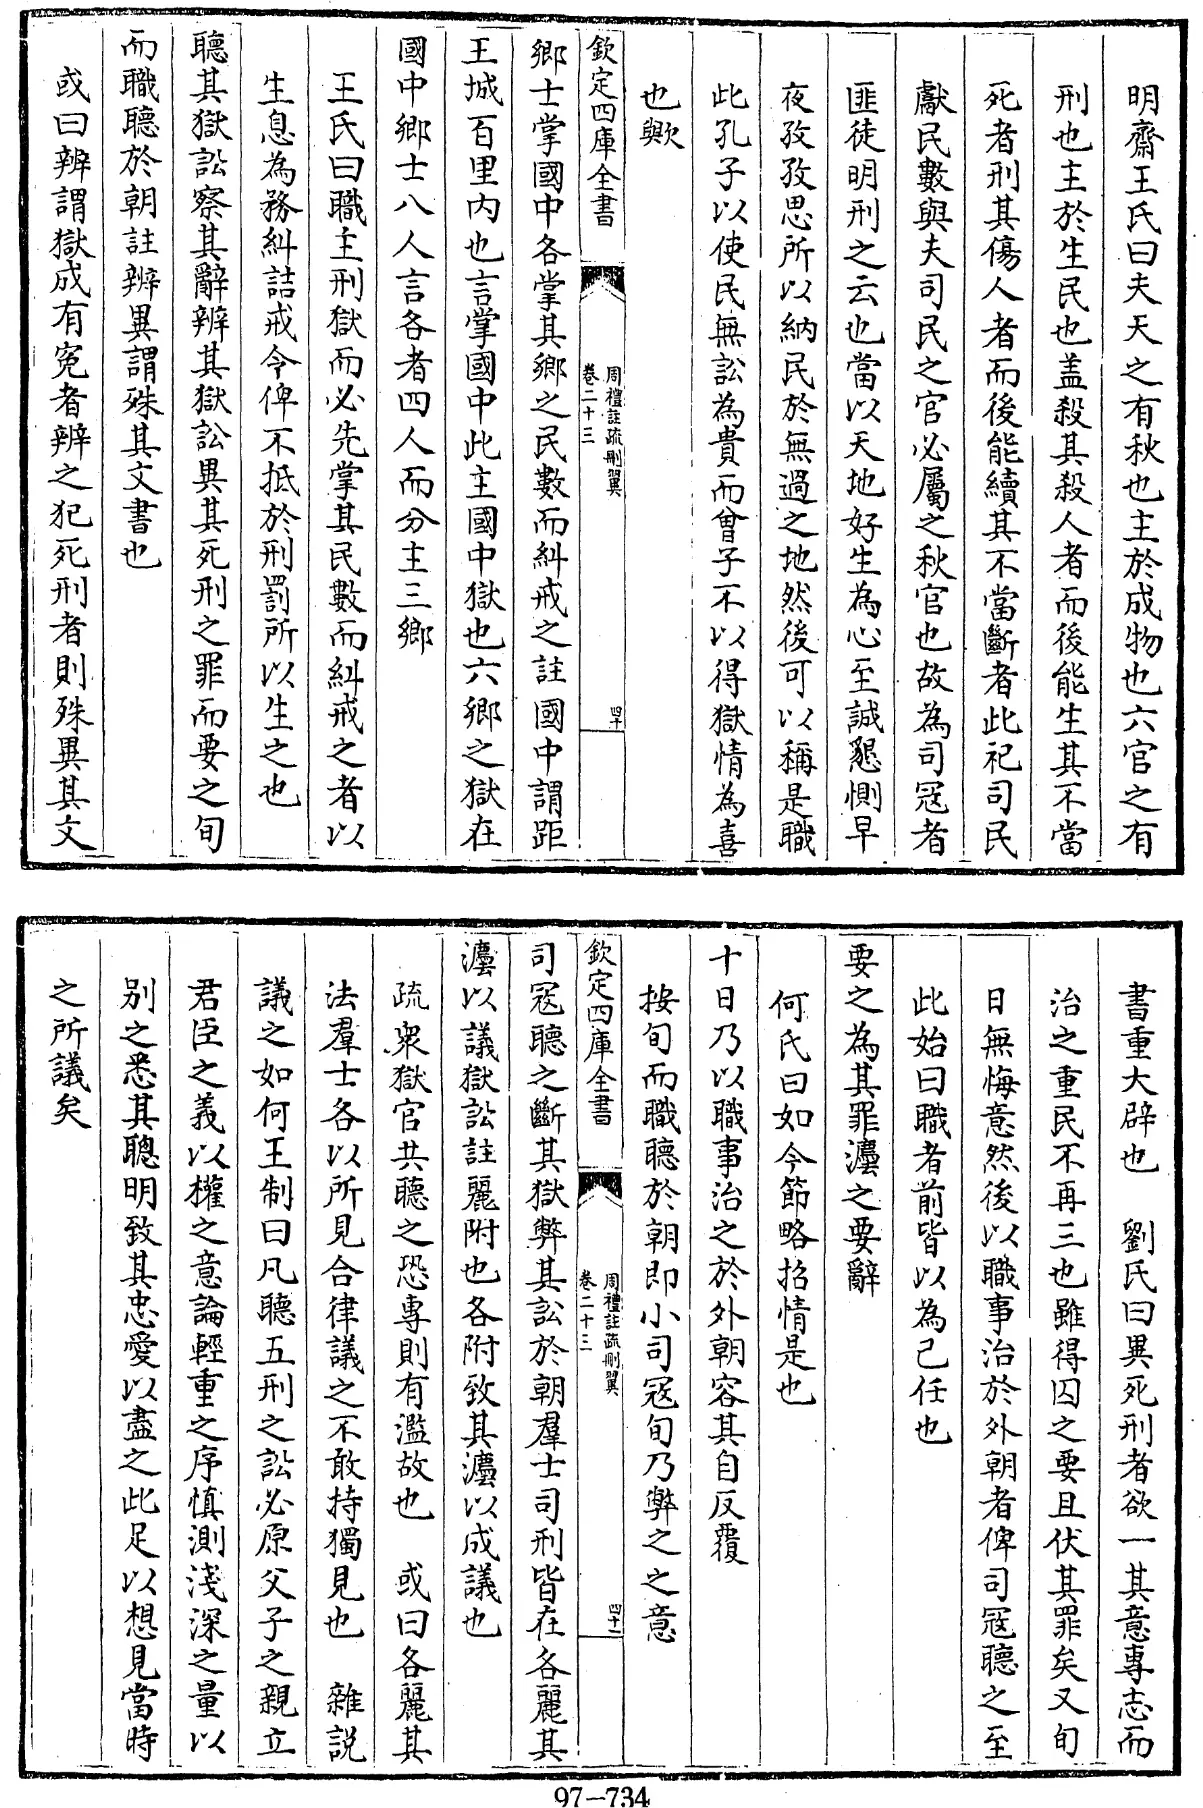 明齋王氏曰夫天之有秋也主於成物也六官之有
刑也主於生民也盖殺其殺人者而後能生其不當
死者刑其傷人者而後能續其不當斷者此祀司民
獻民數與夫司民之官必屬之秋官也故為司冦者
匪徒明刑之云也當以天地好生為心至誠懇惻早
夜孜孜思所以納民於無過之地然後可以稱是職
此孔子以使民無訟為貴而曾子不以得獄情為喜
也歟
欽定四庫全書
周禮註疏刪翼
卷二十三
四十
鄉士掌國中各掌其鄉之民數而糾戒之註國中謂距
王城百里内也言掌國中此主國中獄也六鄉之獄在
國中鄉士八人言各者四人而分主三鄉
王氏曰職主刑獄而必先掌其民數而糾戒之者以
生息為務糾詰戒令俾不抵於刑罰所以生之也
聽其獄訟察其辭辨其獄訟異其死刑之罪而要之旬
而職聽於朝註辨異謂殊其文書也
或曰辨謂獄成有寃者辨之犯死刑者則殊異其文
書重大辟也　劉氏曰異死刑者欲一其意專志而
治之重民不再三也雖得囚之要且伏其罪矣又旬
日無悔意然後以職事治於外朝者俾司冦聽之至
此始曰職者前皆以為己任也
要之為其罪灋之要辭
何氏曰如今節略招情是也
十日乃以職事治之於外朝容其自反覆
按旬而職聽於朝即小司冦旬乃弊之之意
欽定四庫全書
周禮註疏刪翼
卷二十三
四十一
司冦聽之斷其獄弊其訟於朝羣士司刑皆在各麗其
灋以議獄訟註麗附也各附致其灋以成議也
疏衆獄官共聽之恐專則有濫故也　或曰各麗其
法羣士各以所見合律議之不敢持獨見也　雜説
議之如何王制曰凡聽五刑之訟必原父子之親立
君臣之義以權之意論輕重之序慎測淺深之量以
别之悉其聰明致其忠愛以盡之此足以想見當時
之所議矣
97-734